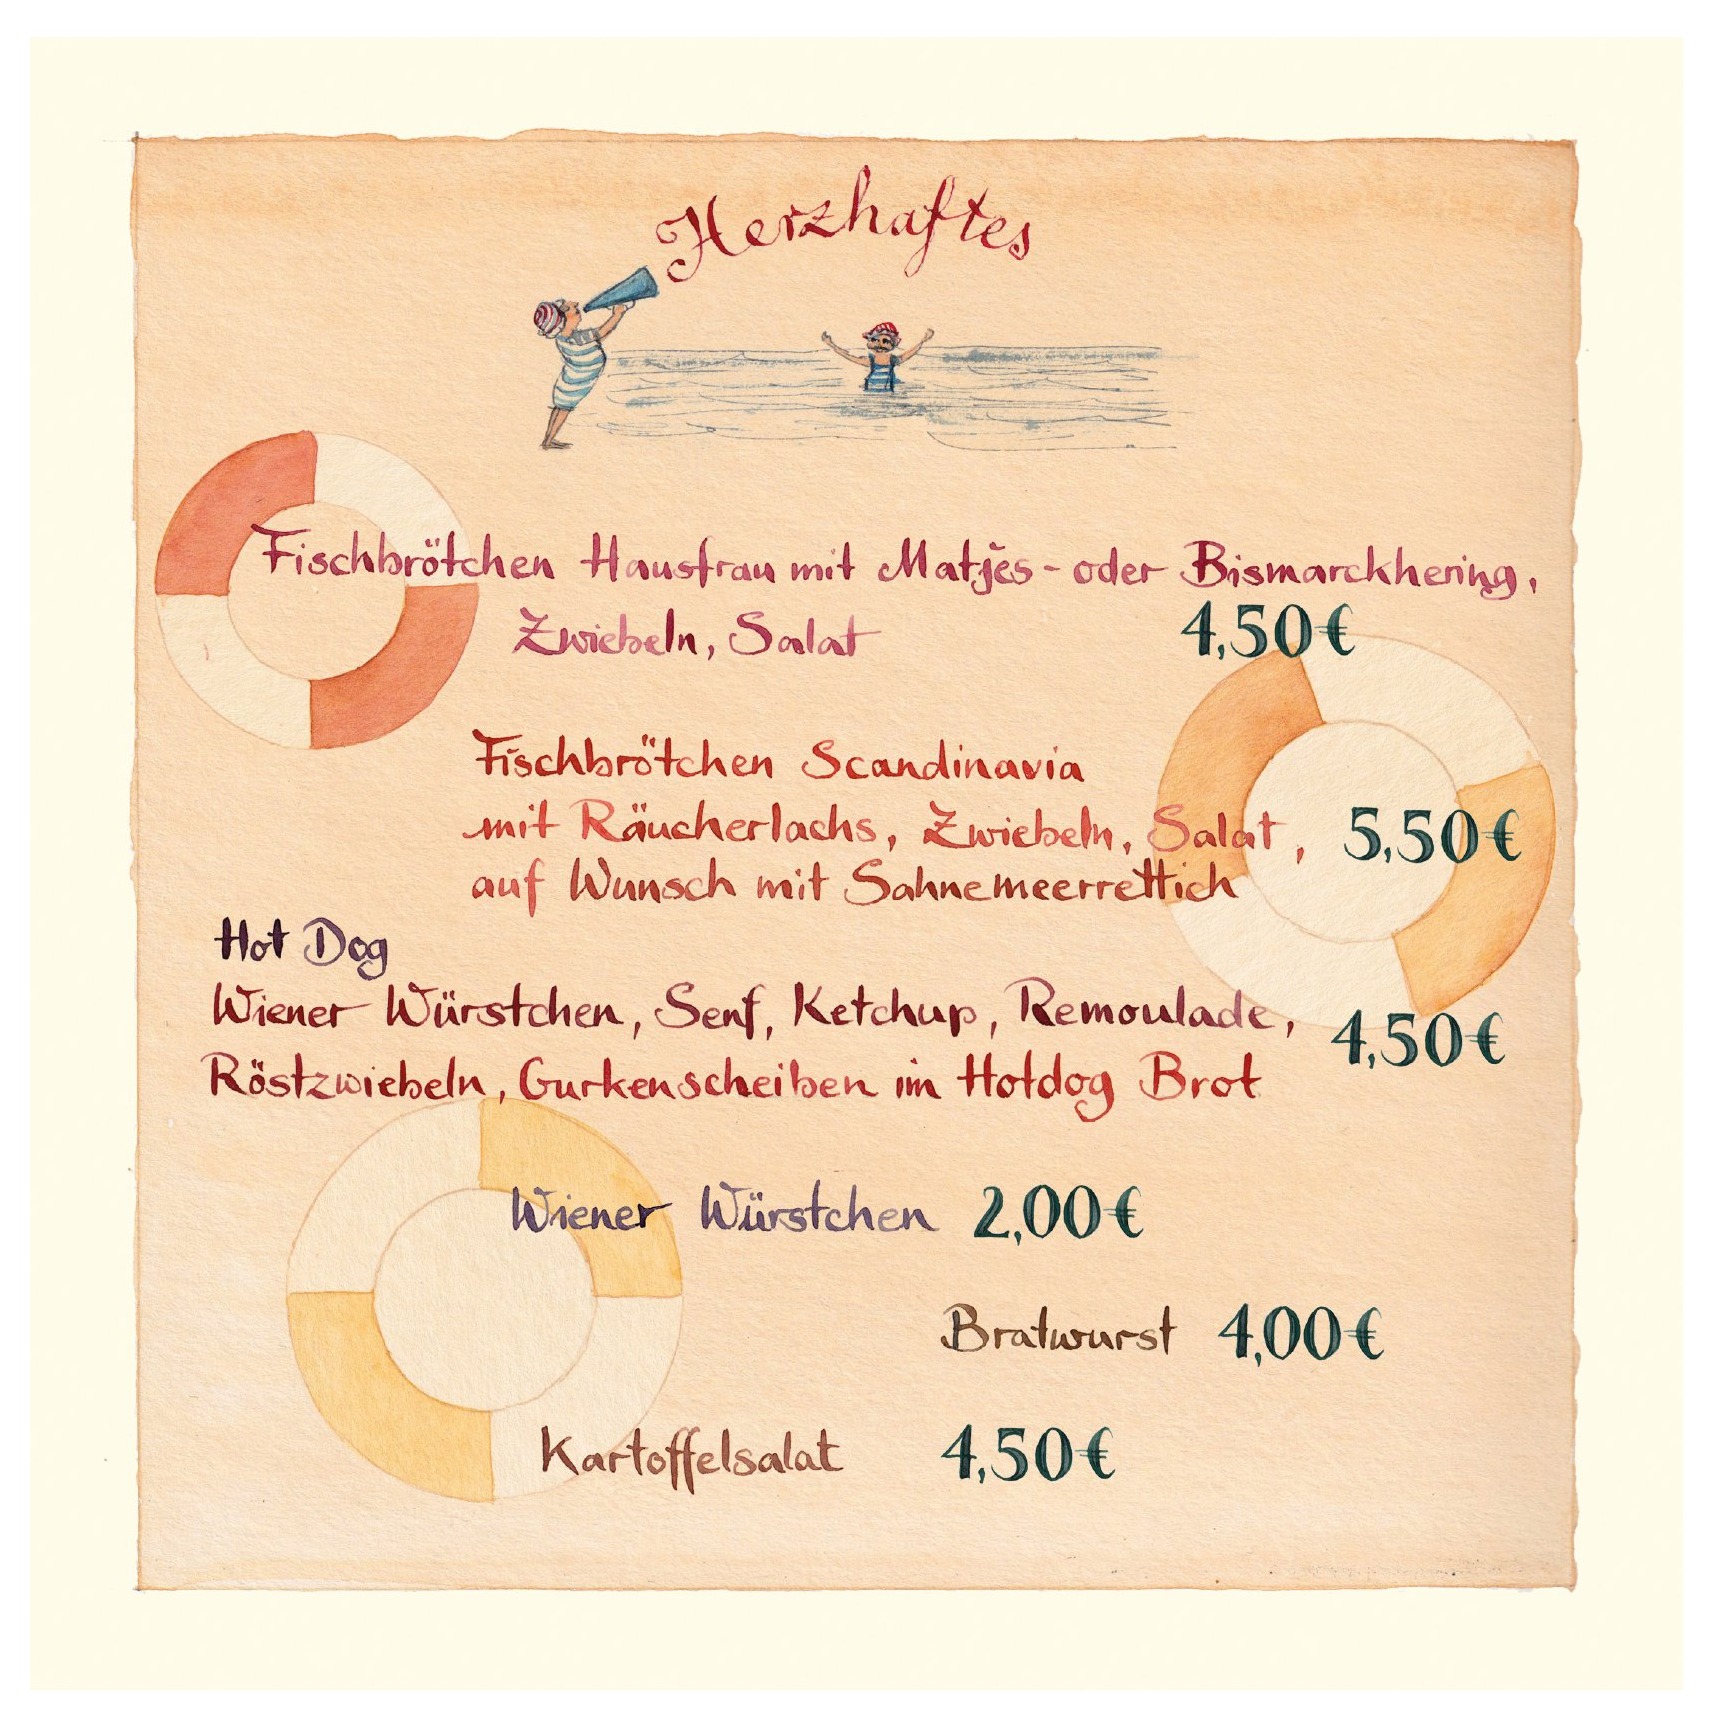 Herzhaftes
Fischbrötchen Hausfrau mit Matjes- oder Bismarckhering,
Zwiebeln, Salat 4,50€
Fischbrötchen Scandinavia
mit Räucherlachs, Zwiebeln, Salat, 5,50€
auf Wunsch mit Sahnemeerrettich
Hot Dog
Wiener Würstchen, Senf, Ketchup, Remoulade, 4,50€
Röstzwiebeln, Gurkenscheiben im Hotdog Brot
Wiener Würstchen 2,00€
Bratwurst 4,00€
Kartoffelsalat 4,50€